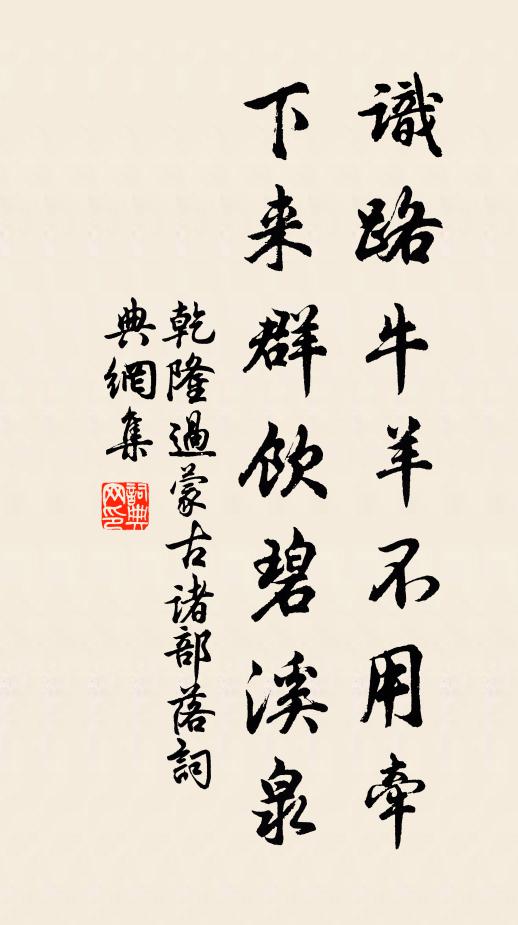 識路牛羊不用牽
下来群飲碧溪泉
乾隆過蒙古諸部落詞
典網集
詞典
网印